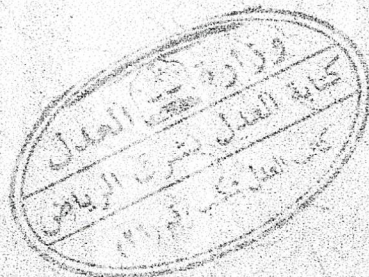 وزارة العدل
كتابة العدل بشرق الرياض
كاتب العدل